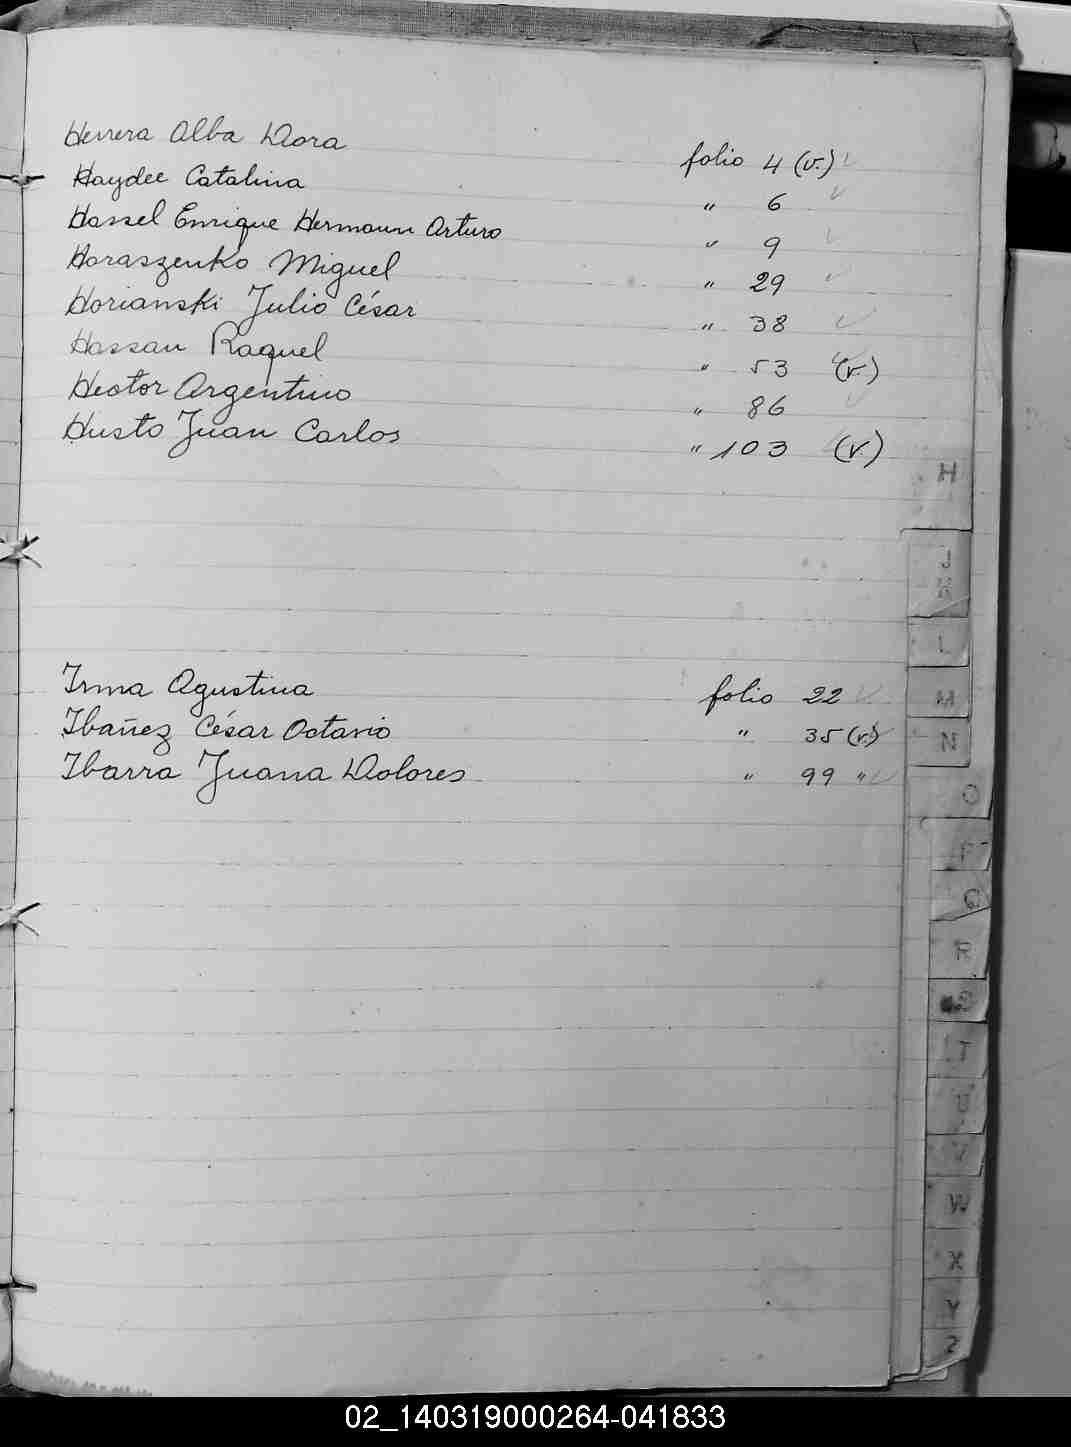 Herrera Alba Dora folio 4 (v.)
Haydee Catalina " 6
Hassel Enrique Hermann Arturo " 9
Haraszenko Miguel " 29
Horianski Julio César " 38
Hassan Raquel " 53 (v.)
Hector Argentino " 86
Husto Juan Carlos " 103 (v.)
Irma Agustina folio 22
Ibañez César Octavio " 35 (v.)
Ibarra Juana Dolores " 99 "
H
J
K
L
M
N
O
P
Q
R
S
T
U
V
W
X
Y
Z
02_140319000264-041833